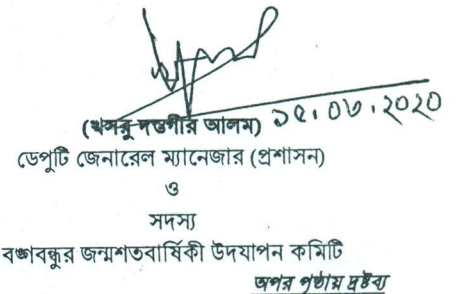 (খসরু দস্তগীর আলম) ১৫.০৩.২০২০
ডেপুটি জেনারেল ম্যানেজার (প্রশাসন)
ও
সদস্য
বঙ্গবন্ধুর জন্মশতবার্ষিকী উদযাপন কমিটি
অপর পৃষ্ঠায় দ্রষ্টব্য